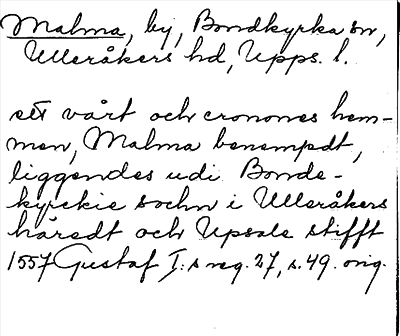 Malma, by, Bondkyrka sn,
Ulleråkers hd, Upps. l.
ett vårt och cronones hem-
men, Malma benempdt,
liggendes udi Bonde-
kyrckie sochn i Ulleråkers
häredt och Upsale stifft
1557 Gustaf I:s reg. 27, s. 49. orig.